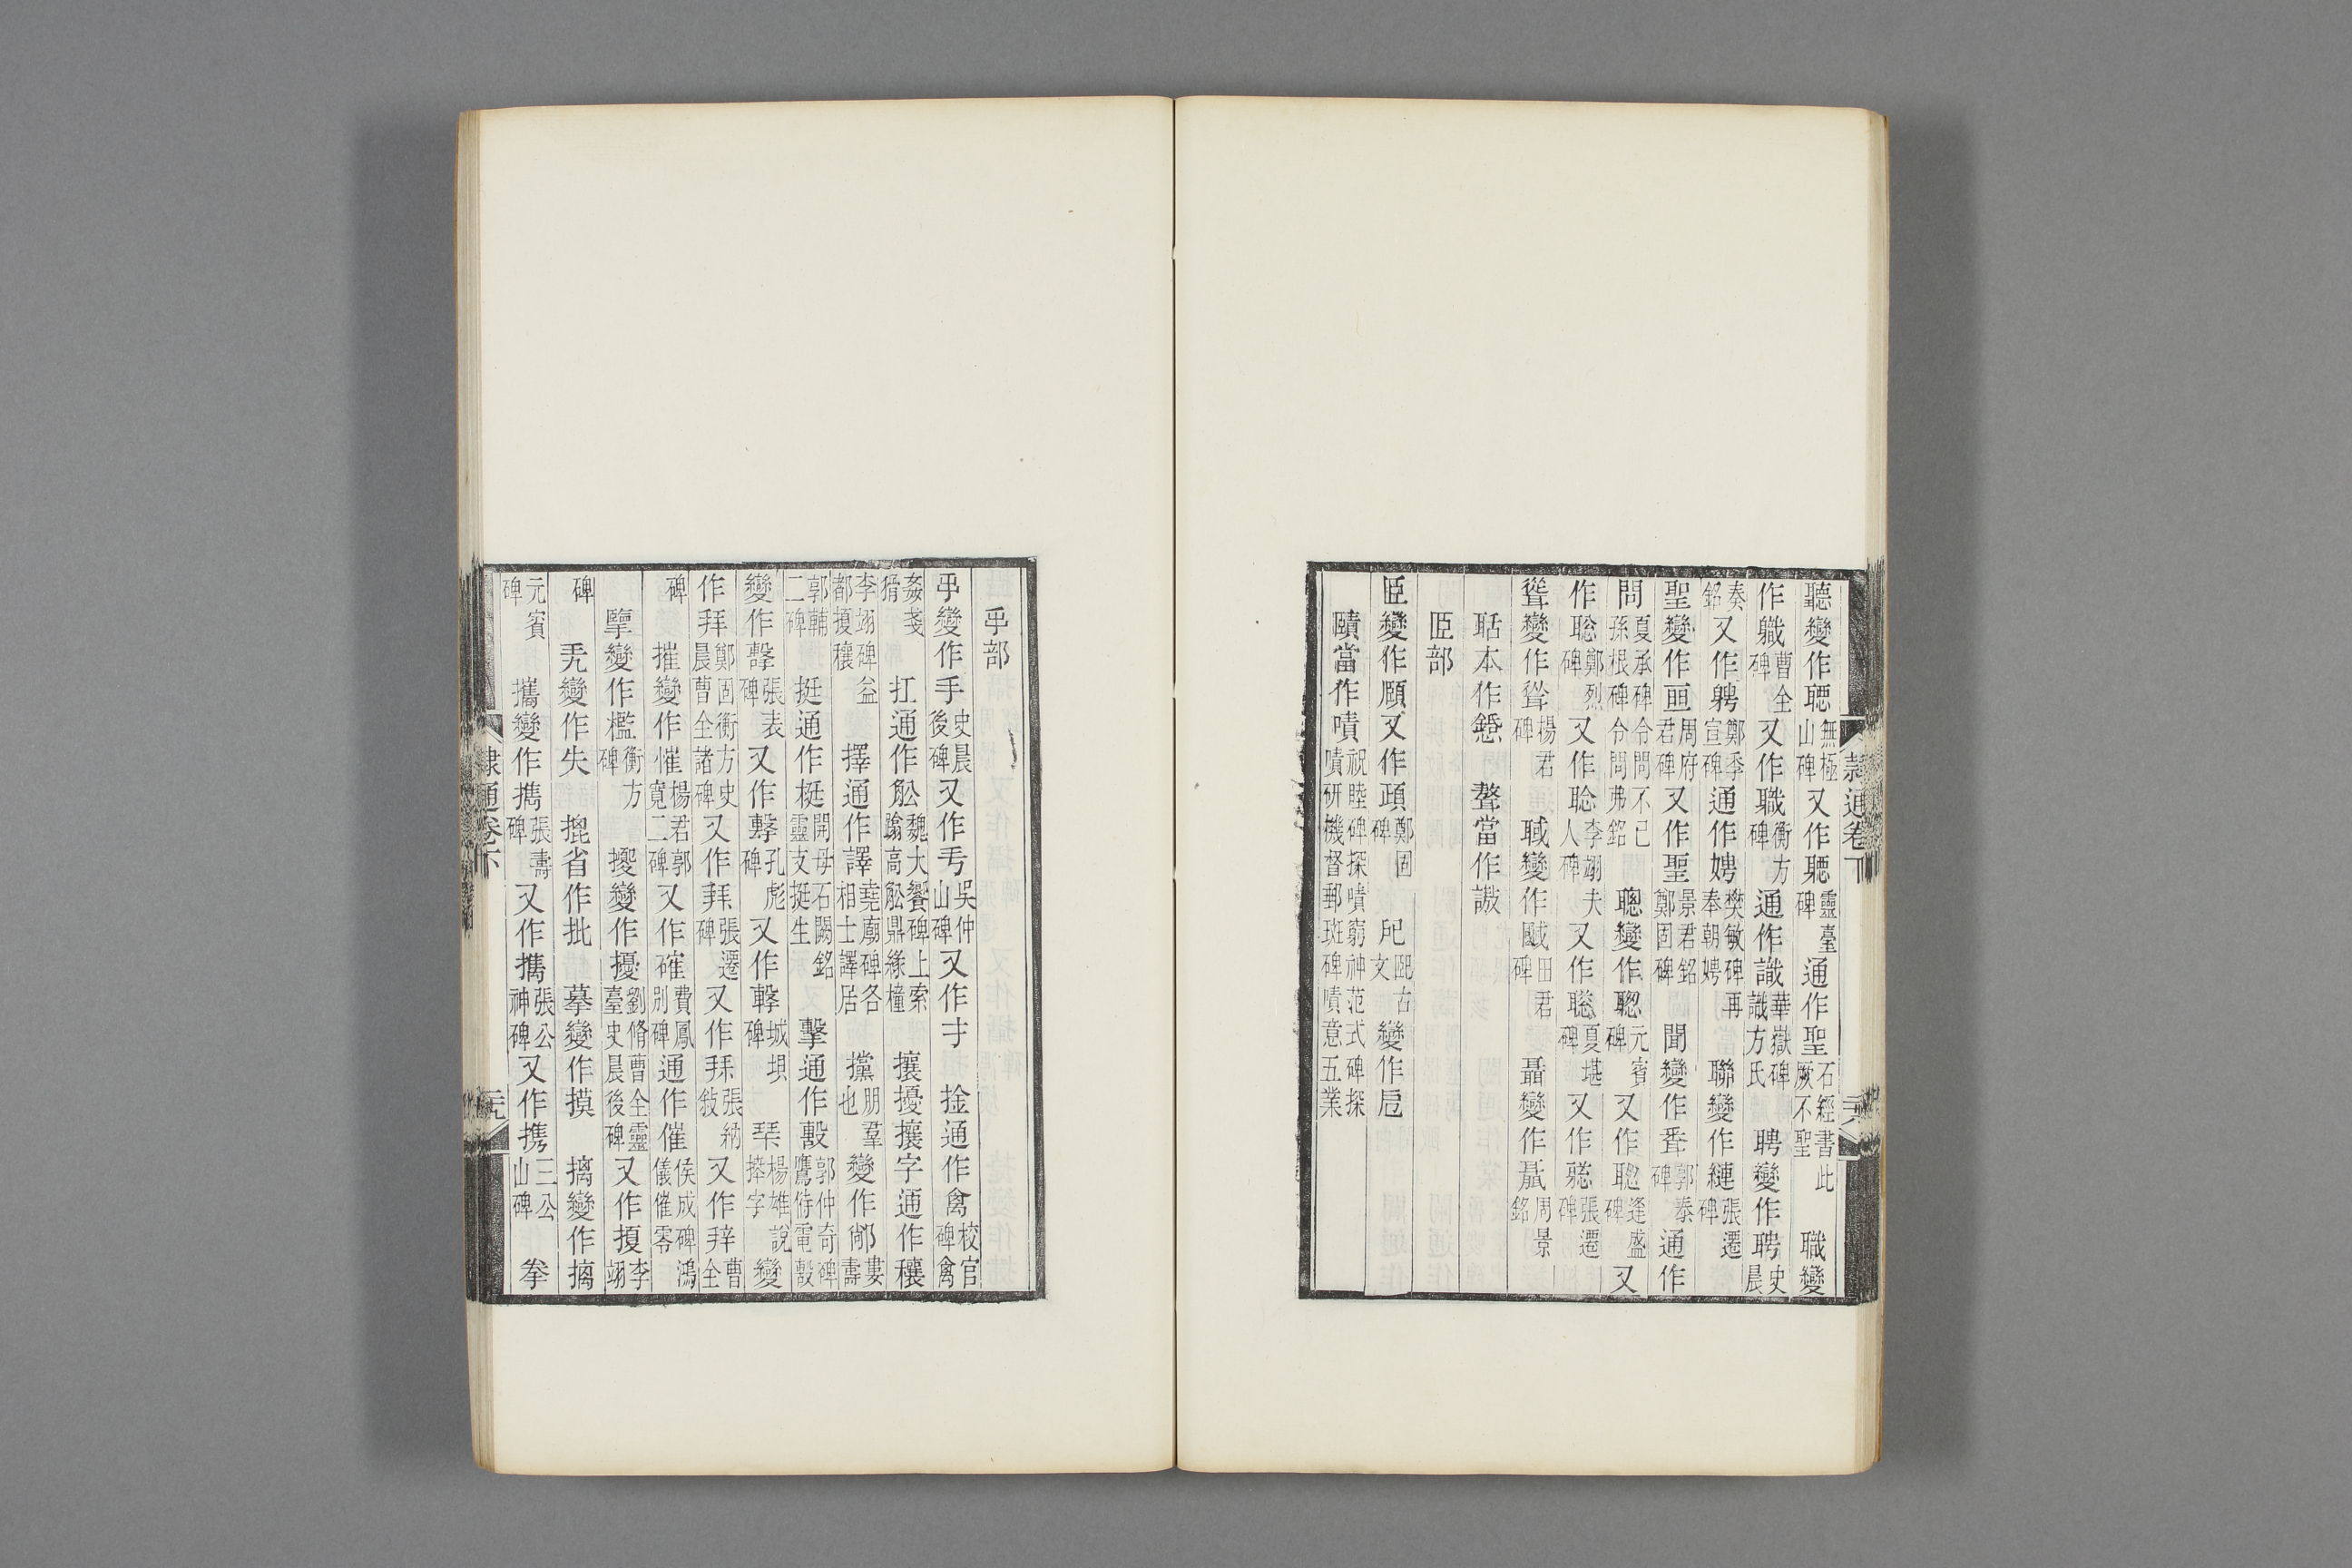 聽變作聴無極山碑又作聽靈臺碑通作聖石經書此厥不聖 職變
作軄曹全碑又作職衡方碑通作識華嶽碑識方氏 聘變作聘史晨
奏銘又作騁鄭季宣碑通作娉樊敏碑再奉朝娉 聯變作縺張遷碑
聖變作周府君碑又作聖景君銘鄭固碑 聞變作郭泰碑通作
問夏承碑令問不已孫根碑令問弗銘 聰變作聦元賓碑又作聡逢盛碑又
作聡鄭烈碑又作聡李翊夫人碑又作聡夏堪碑又作張遷碑
聳變作楊君碑 聝變作田君碑 聶變作周景銘
聒本作 聱當作謷
𦣞部
𦣞變作頤又作鄭固碑 古文 變作
賾當作嘖祝睦碑探嘖窮神范式碑探嘖研機督郵班碑嘖意五業
隸通卷下
二十八
手部
變作手史晨後碑又作吳仲山碑又作才 捡通作禽校官碑禽
姦戔猾 扛通作舩魏大饗碑上索踰高舩鼎緣橦 攘擾攘字通作穰
李翊碑益都擾穰 擇通作譯堯廟碑各相士譯居 攩朋羣也變作鄺婁壽
郭輔二碑 挺通作梃開母石闕銘靈支挺生 擊通作郭仲奇碑鷹侍電
變作張表碑又作孔彪碑又作城壩碑 楊雄說字變
作拜鄭固衡方史晨曹全諸碑又作張遷碑又作張納又作曹全
碑 摧變作慛楊君郭寬二碑又作確費鳳別碑通作催侯成碑鴻儀催零
變作檻衡方碑 變作擾劉脩曹全靈臺史晨後碑又作李翊
碑 變作失 省作批 摹變作摸 摛變作摛
元賓碑 攜變作㩗張壽碑又作攜張公神碑又作携三公山碑 拳
隸通卷下
二十九